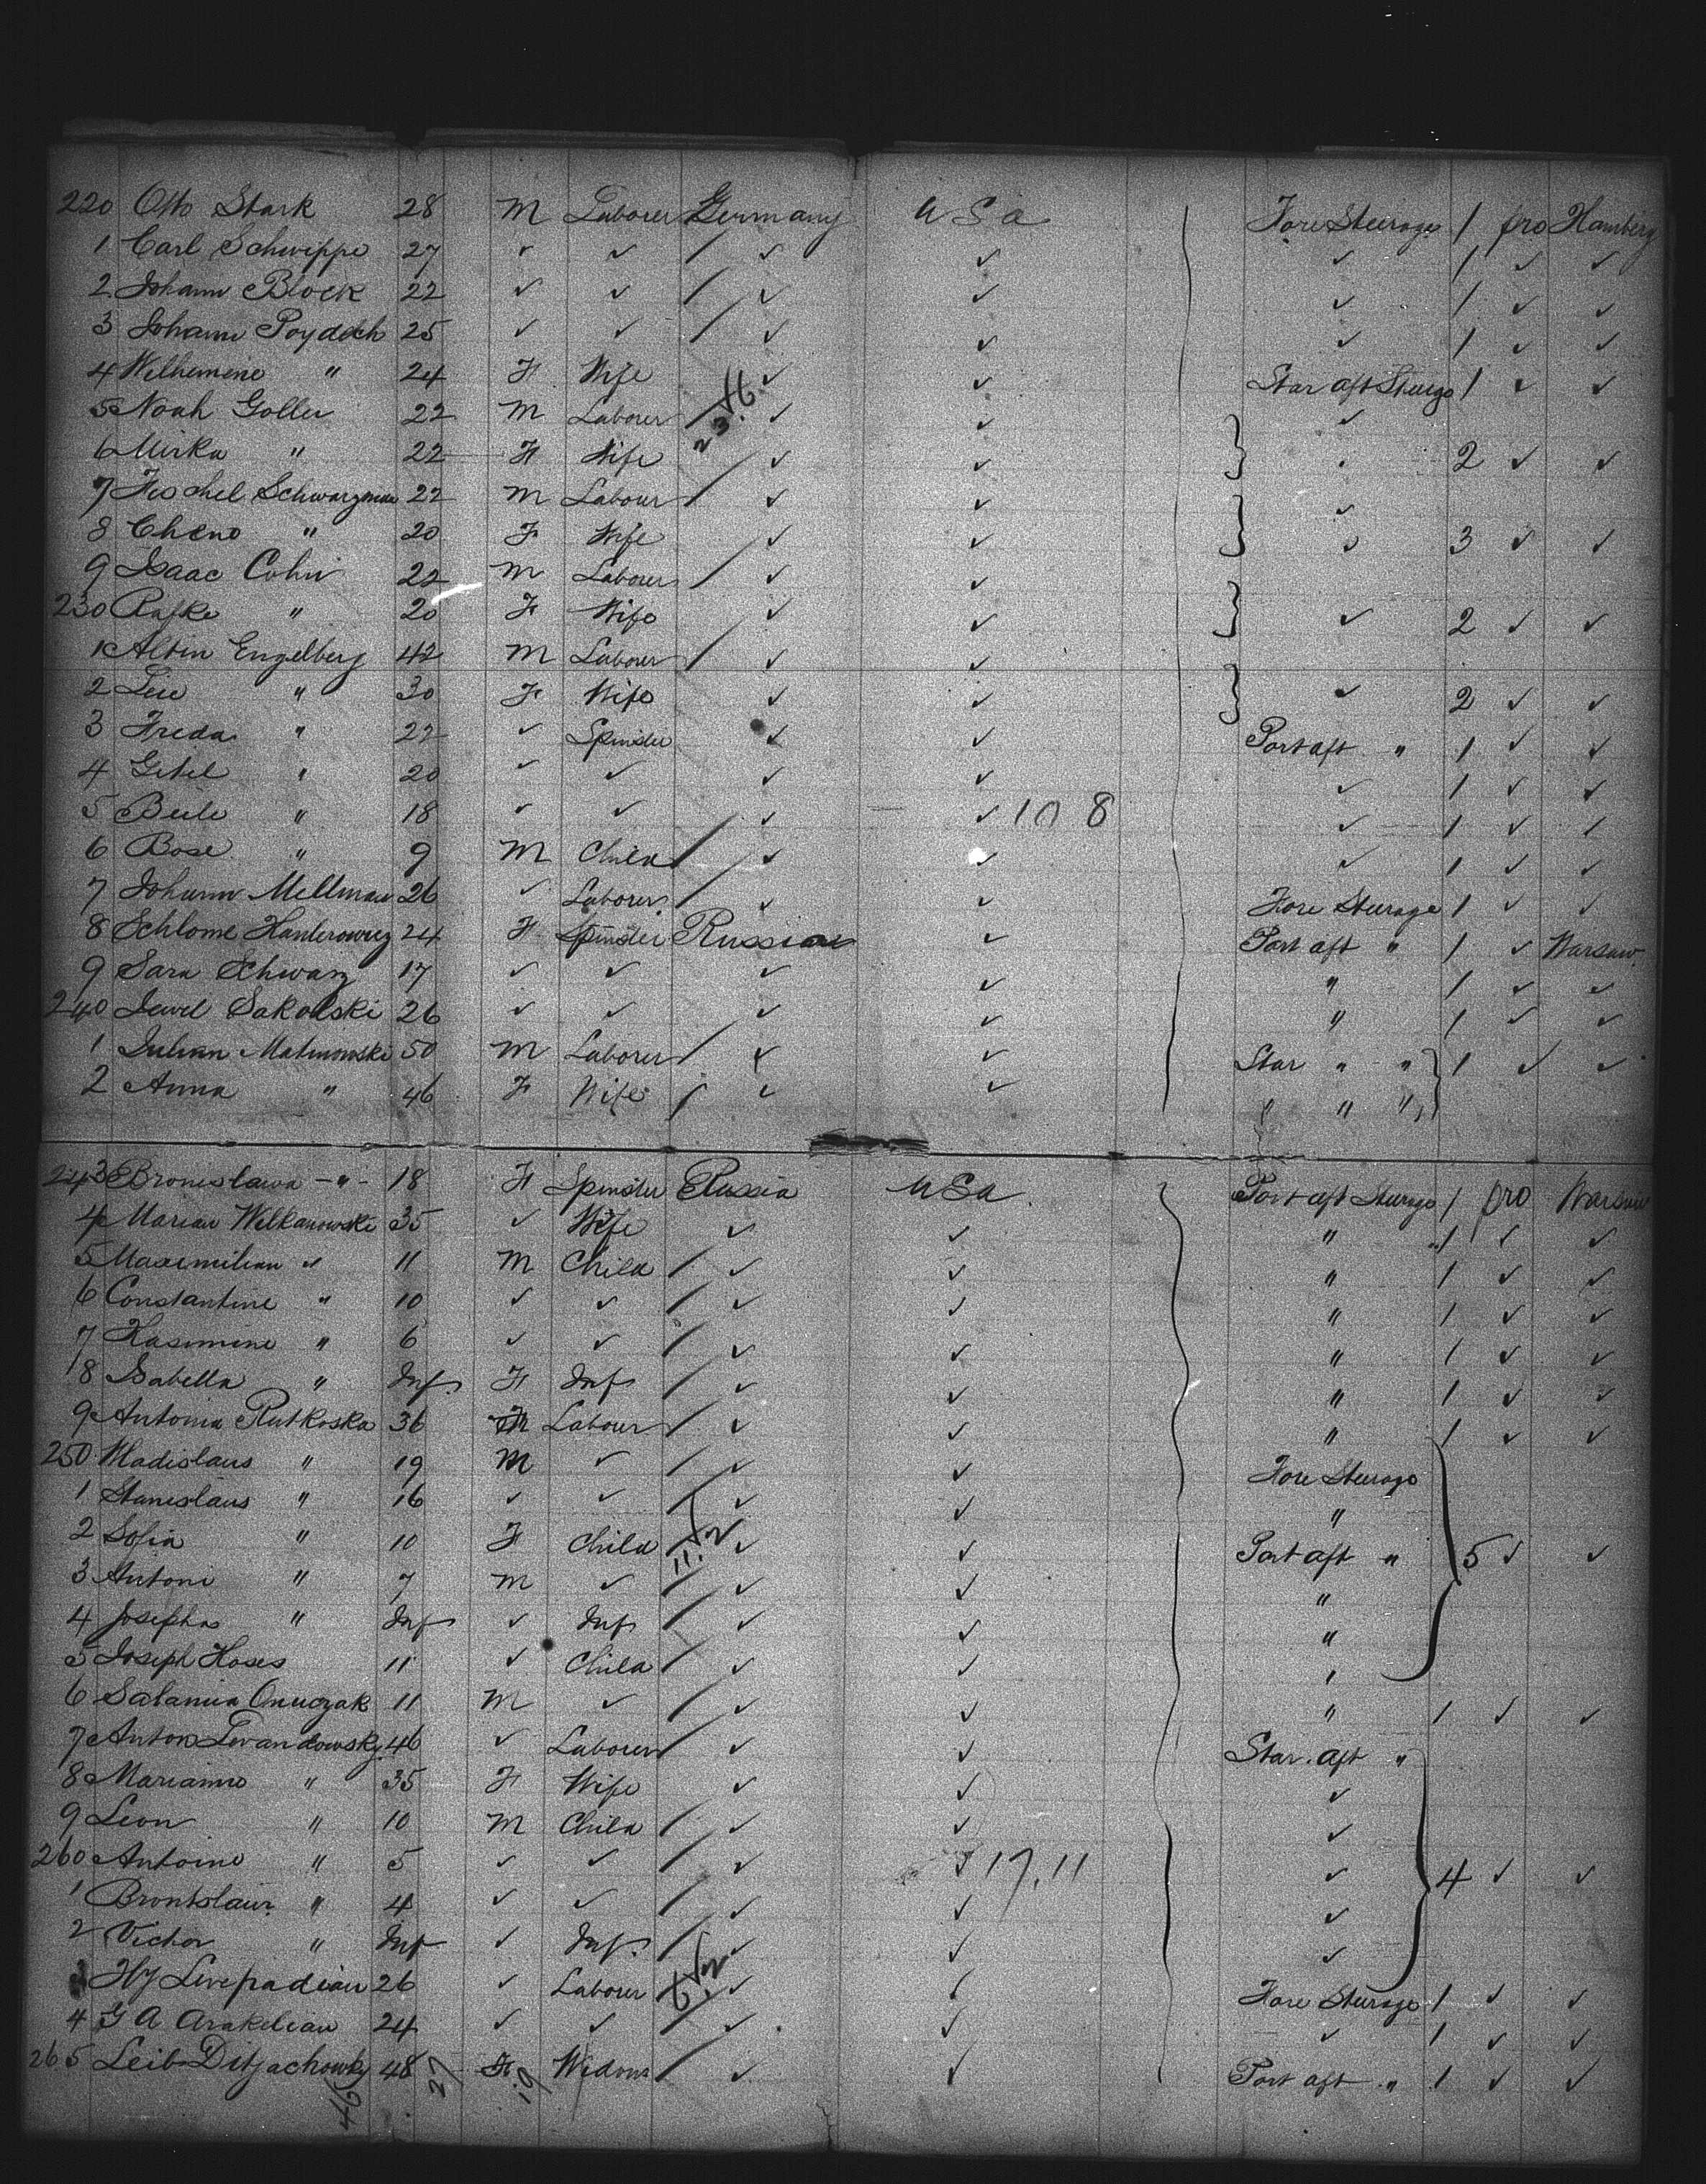 220 Otto Stark 28 M Laborer Germany U S A Fore Steerage 1 pro Hamburg
1 Carl Schwippe 27 ✓ ✓ / ✓ ✓ ✓ 1 ✓ ✓
2 Johann Block 22 ✓ ✓ / ✓ ✓ ✓ 1 ✓ ✓
3 Johann Poydoch 25 ✓ ✓ / ✓ ✓ ✓ 1 ✓ ✓
4 Wilhemine " 24 F Wife ✓ ✓ Star aft Steerge 1 ✓ ✓
5 Noah Goller 22 M Laborer / ✓ ✓ ✓
6 Mirka " 22 F Wife / ✓ ✓ 2 ✓ ✓
7 Fischel Schwarzman 22 M Labour / ✓ ✓ ✓
8 Cheno " 20 F Wife / ✓ ✓ ✓ 3 ✓ ✓
9 Isaac Cohn 22 M Laborer / ✓ ✓
230 Rafke " 20 F Wife ✓ ✓ ✓ 2 ✓ ✓
1 Altin Engelberg 42 M Laborer / ✓ ✓
2 Leie " 30 F Wife ✓ ✓ ✓ 2 ✓ ✓
3 Freda " 22 ✓ Spinster ✓ ✓ Port aft " 1 ✓ ✓
4 Gitel " 20 ✓ ✓ ✓ ✓ ✓ 1 ✓ ✓
5 Beile " 18 ✓ ✓ ✓ ✓ 10 8 ✓ 1 ✓ ✓
6 Bose " 9 M Child / ✓ ✓ ✓ 1 ✓ ✓
7 Johann Mellman 26 ✓ Laborer / ✓ ✓ Fore Steerage 1 ✓ ✓
8 Schlome 24 F Spinster Russian ✓ Port aft " 1 ✓ Warsaw
9 Sara Schwarz 17 ✓ ✓ ✓ ✓ " 1 ✓ ✓
240 Sakolski 26 ✓ ✓ ✓ ✓ " 1 ✓ ✓
1 Julian Malinowski 50 M Laborer / ✓ ✓ Star " " 1 ✓ ✓
2 Anna " 46 F Wife / ✓ ✓ " " "
243 Bronislawa - " - 18 F Spinster Russia U S A Port aft Steerage 1 pro Warsaw
4 Marian Wilkanowski 35 ✓ Wife ✓ ✓ " 1 ✓ ✓
5 Maximilian " 11 M Child / ✓ ✓ " 1 ✓ ✓
6 Constantine " 10 ✓ ✓ / ✓ ✓ " 1 ✓ ✓
7 Kasimine " 6 ✓ ✓ / ✓ ✓ " 1 ✓ ✓
8 Isabella " Inf. F Inf / ✓ ✓ " 1 ✓ ✓
9 Antonia Rutkoska 36 F Labour / ✓ ✓ " 1 ✓ ✓
250 Wladislaus " 19 M ✓ / ✓ ✓ Fore Steerage
1 Stanislaus " 16 ✓ ✓ / ✓ ✓ "
2 Sofia " 10 F Child / ✓ ✓ Port aft " 5 ✓ ✓
3 Antoni " 7 M ✓ / ✓ ✓ "
4 Josepha " Inf ✓ Inf / ✓ ✓ "
5 Joseph Hoses 11 ✓ Child / ✓ ✓ "
6 Salamia Onuczak 11 M ✓ / ✓ ✓ " 1 ✓ ✓
7 Anton Levandowsky 46 ✓ Laborer / ✓ ✓ Star. aft "
8 Marianne " 35 F Wife ✓ ✓ ✓
9 Leon " 10 M Child / ✓ ✓ ✓
260 Antoine " 5 ✓ ✓ / ✓ ✓ 17.11 ✓ 4 ✓ ✓
1 " 4 ✓ ✓ / ✓ ✓ ✓
2 Victor " Inf ✓ Inf. / ✓ ✓ ✓
3 26 ✓ Laborer / ✓ ✓ Fore Steerage 1 ✓ ✓
4 G A Arakelian 24 ✓ ✓ / ✓ ✓ ✓ 1 ✓ ✓
265 Leib 48 F Widow / ✓ ✓ Port aft " 1 ✓ ✓
46 27 19